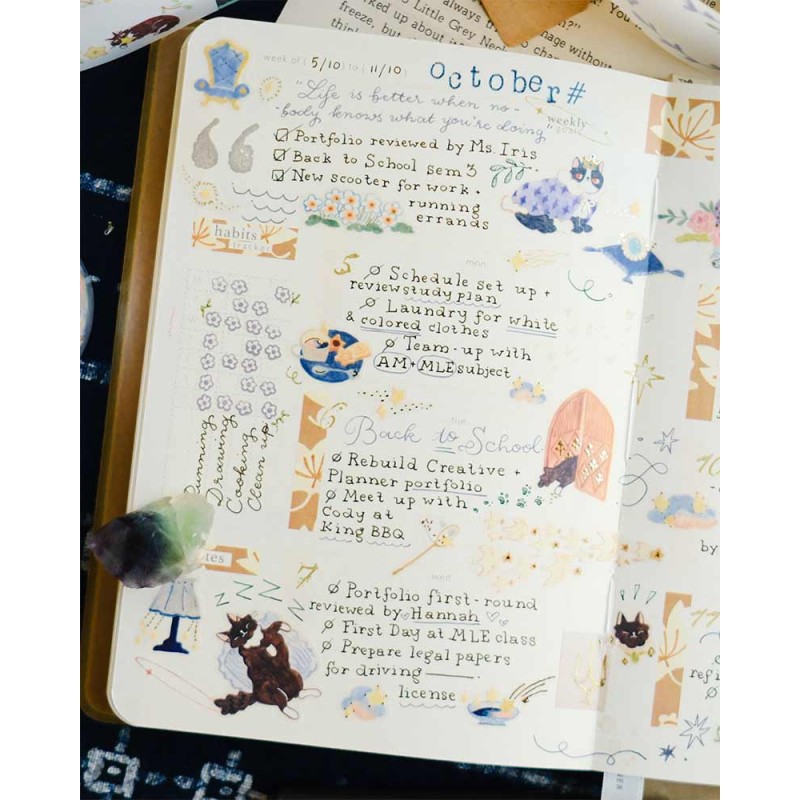 always t
You
image without
freeze, but
ked up about i
Little Grey Neck
to chang
week of ( 5/10 ) to ( 11/10 )
october#
"Life is better when no-
-body knows what you're doing"
weekly
goals
Portfolio reviewed by Ms. Iris
Back to School sem 3
New scooter for work.
running
errands
habits
tracker
mon
5
Schedule set up +
review study plan
Laundry for white
& colored clothes
Team-up with
AM + MLE subject
Running
Drawing
Cooking
Clean up
tue
6
Back to School
Rebuild Creative +
Planner portfolio
Meet up with
Cody at
King BBQ
tes
wed
7
Portfolio first-round
reviewed by Hannah
First Day at MLE class
Prepare legal papers
for driving
license
ZZZZZ
10
by
11
refi